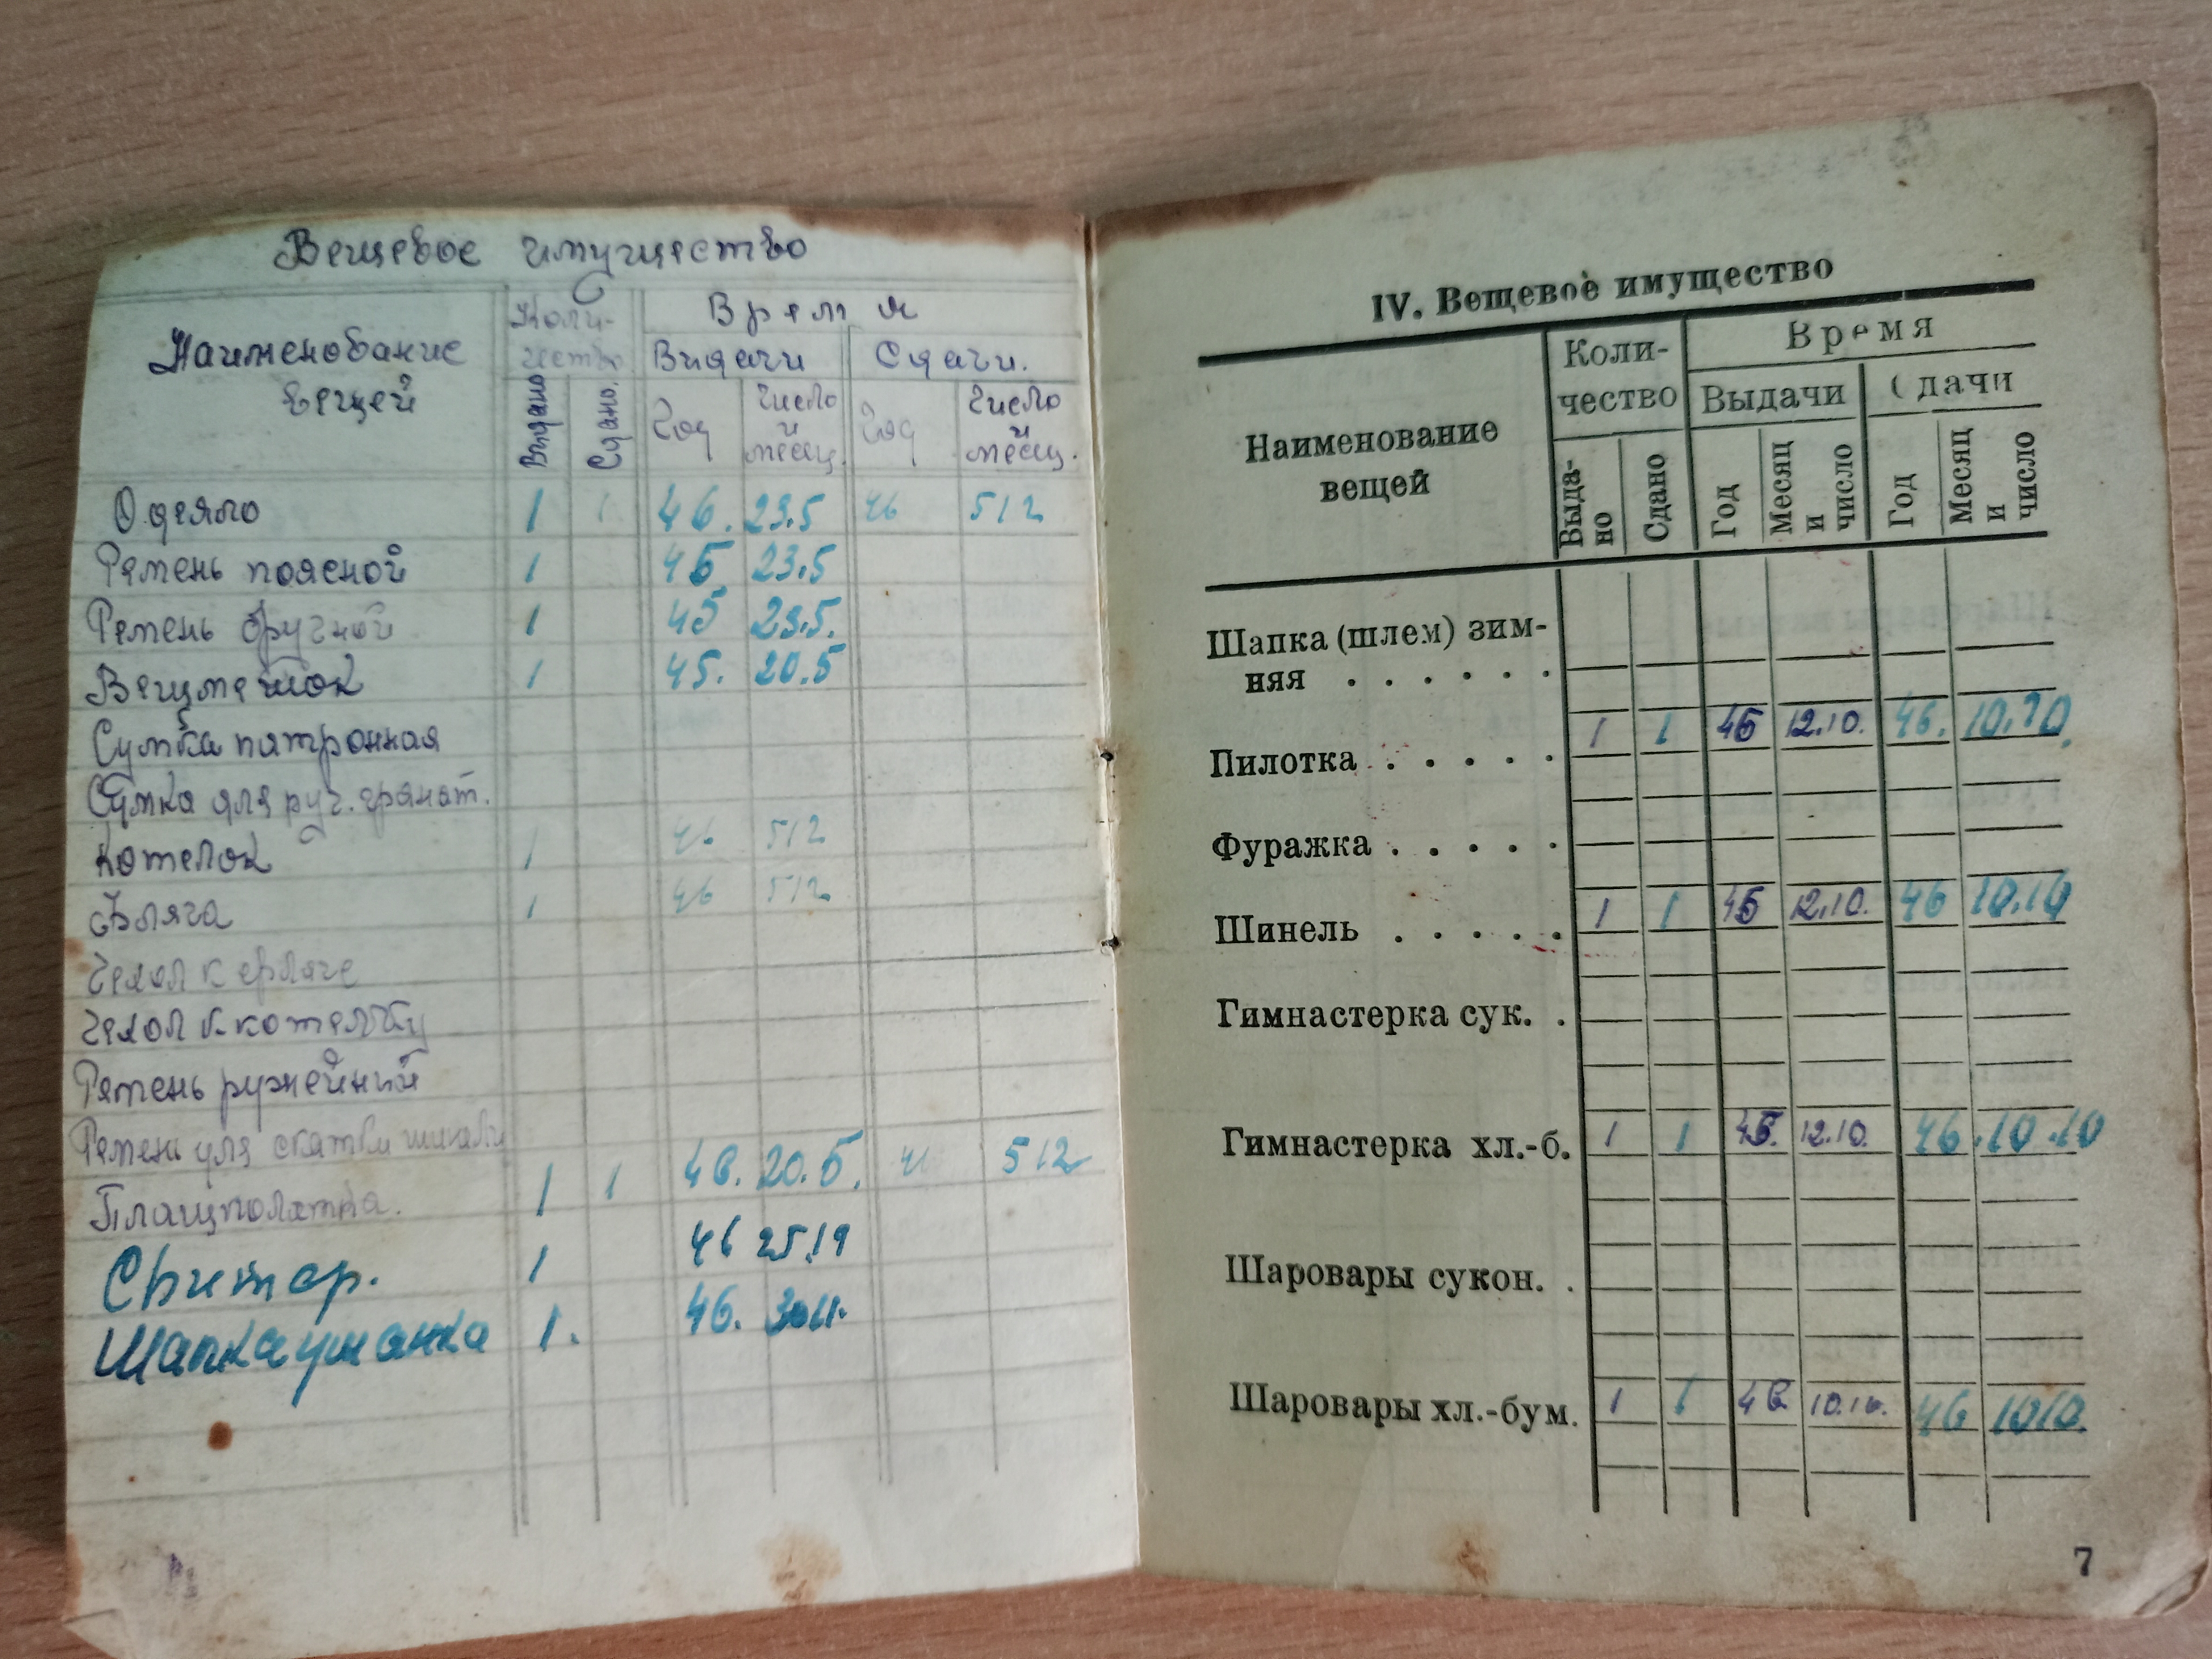 Вещевое имущество
Наименование
вещей
Коли-
чество
Время
Видачи
Сдачи.
Видано
Сдано.
Год
Число
и
месяц.
Год
Число
и
месяц.
Одеяло 1 1 46. 23.5 46 5 12
Ремень поясной 1 45 23.5
Ремень брючной 1 45 23.5.
Вещмешок 1 45. 20.5
Сумка патронная
Сумка для руч. гранат.
Котелок 1 46 5 12
Фляга 1 46 5 12
Чехол к фляге
Чехол к котелку
Ремень ружейний
Ремень для скатки шинели
Плащполатка. 1 1 46. 20.5. 5 12
Свитор. 1 46
Шапка ушанка 1. 46. 30 11.
IV. Вещевое имущество
Наименование
вещей
Коли-
чество
Время
Выдачи
Сдачи
Выда-
но
Сдано
Год
Месяц
и
число
Год
Месяц
и
число
Шапка (шлем) зим-
няя . . . . . .
Пилотка . . . . . 1 1 45 12.10. 46. 10.10.
Фуражка . . . . .
Шинель . . . . . 1 1 45 12.10. 46 10.10
Гимнастерка сук. .
Гимнастерка хл.-б. 1 1 45. 12.10. 46. 10.10
Шаровары сукон. .
Шаровары хл.-бум. 1 1 46 10.10. 46 10 10.
7